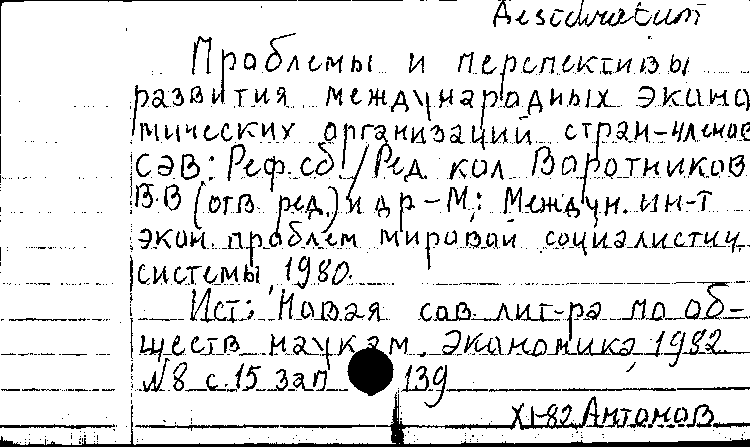 Desideratum
Проблемы и перспективы
развития международных эконо
мических организаций стран-членов
СЭВ: Реф. сб. / Ред. кол Воротников
В.В (отв ред.) и др – М.: Междун. ин-т
экон. проблем мировой социалистич
системы, 1980.
Ист: Новая сов лит-ра по об-
ществ наукам. Экономика, 1982
N8 с.15 зап 139
XI-82 Антонов